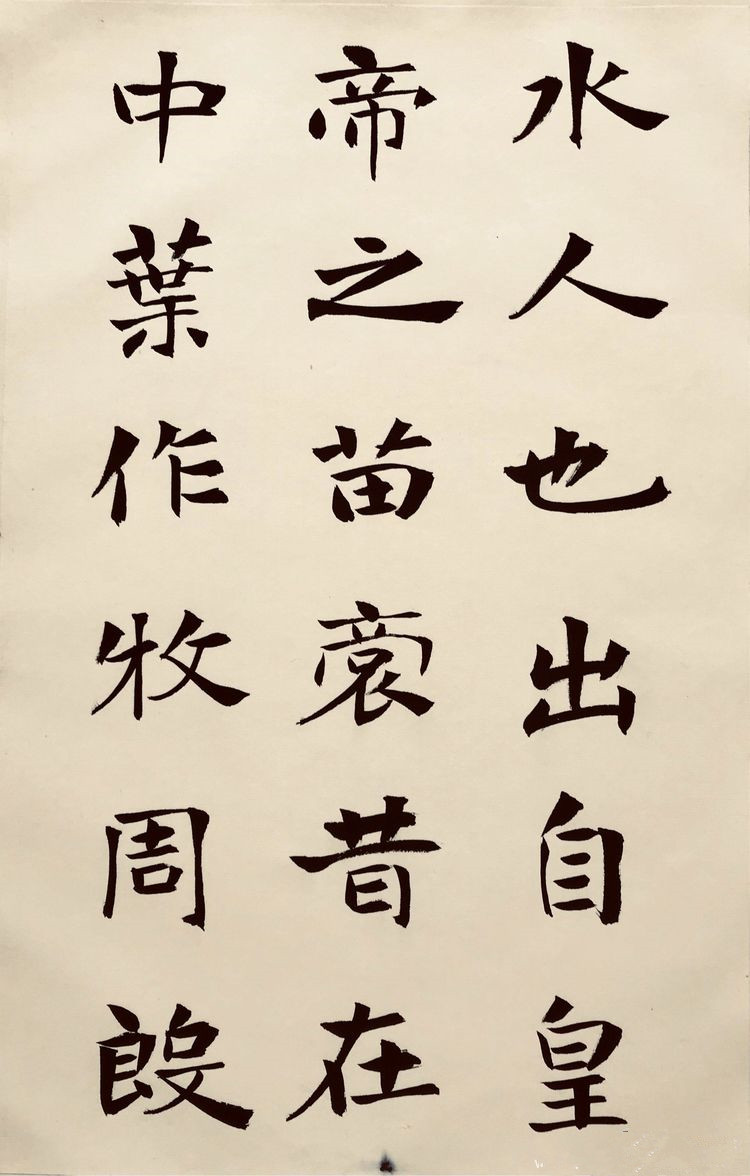 水人也出自皇
帝之苗裔昔在
中葉作牧周殷